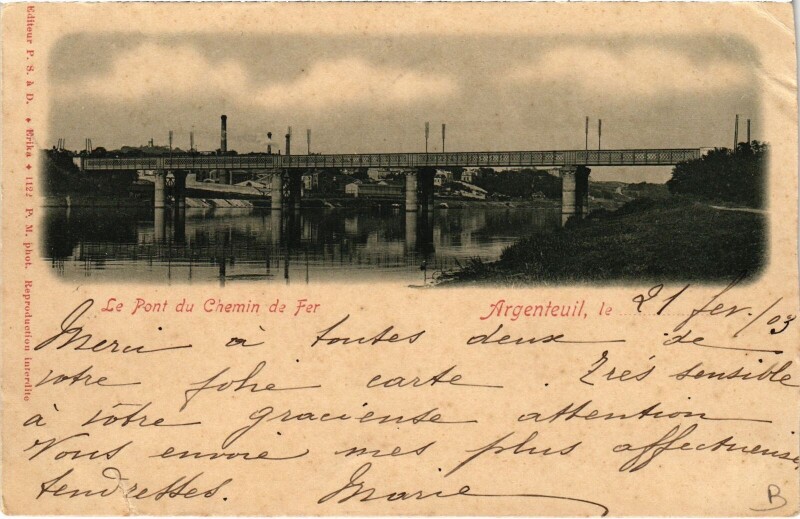 Editeur P. S. à D. ✦ Erika ✦ 1122 P. M. phot. Reproduction interdite
Le Pont du Chemin de Fer
Argenteuil, le 21 fev./03
Merci à toutes deux de
votre jolie carte. Très sensible
à vôtre graciense attention
Vous envoie mes plus affectueuses
tendresses. Marie
B